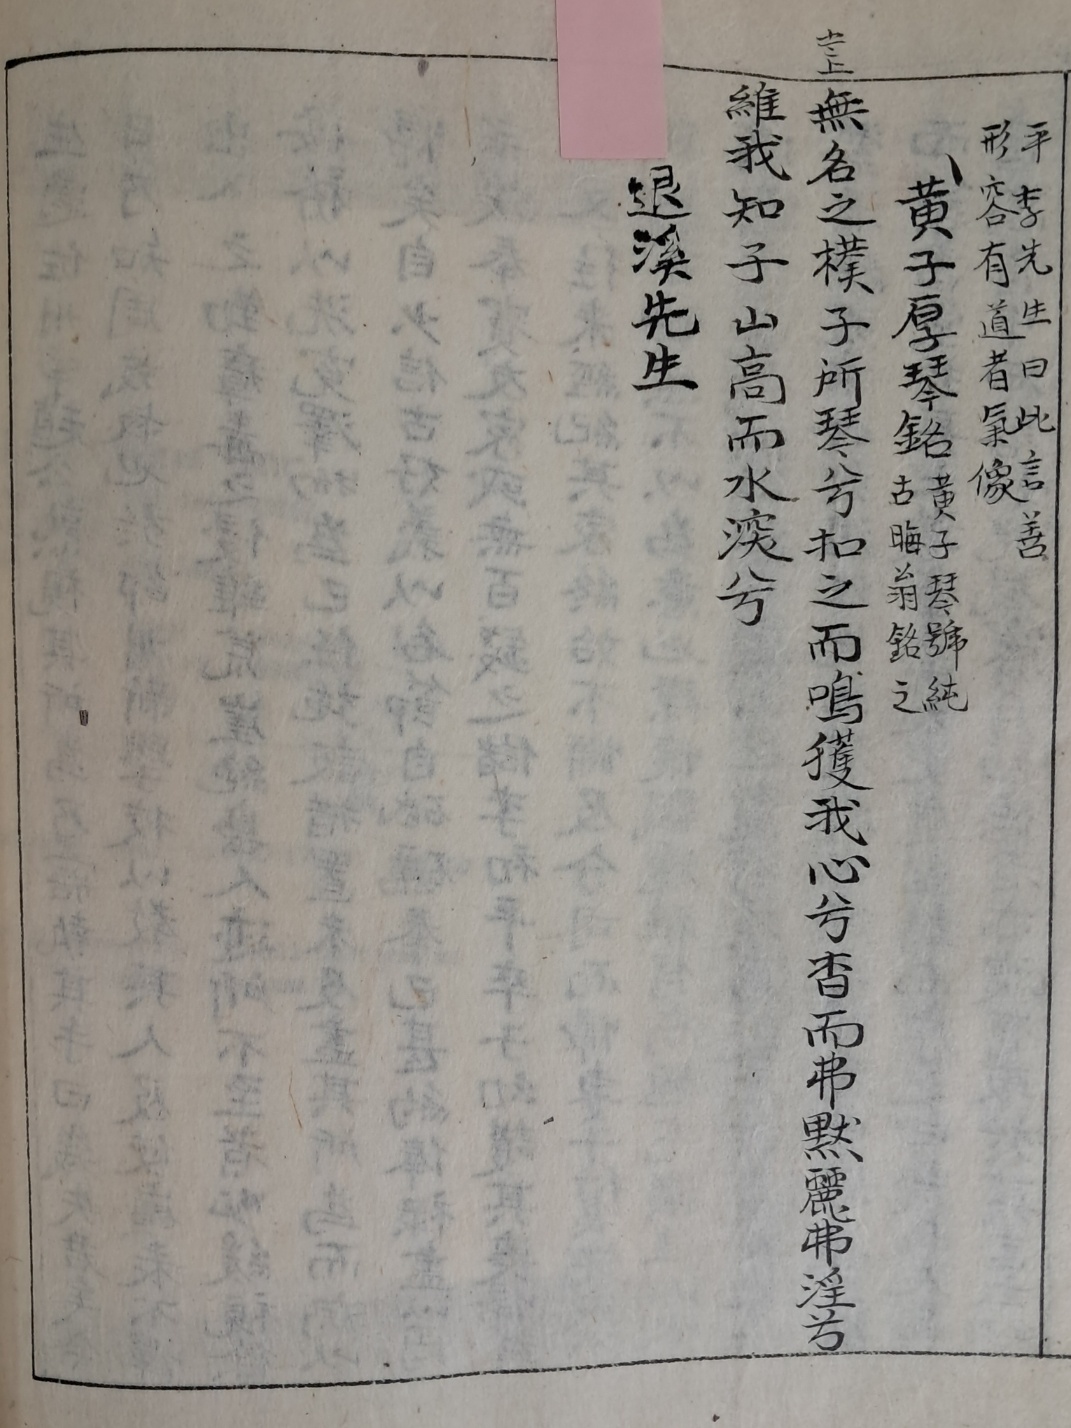 平李先生曰此言善
形容有道者氣像
黃子厚琴銘 黃子琴號純
古晦翁銘之
無名之樸子所琴兮扣之而鳴獲我心兮杳而弗默麗弗淫兮
維我知子山高而水深兮
退溪先生